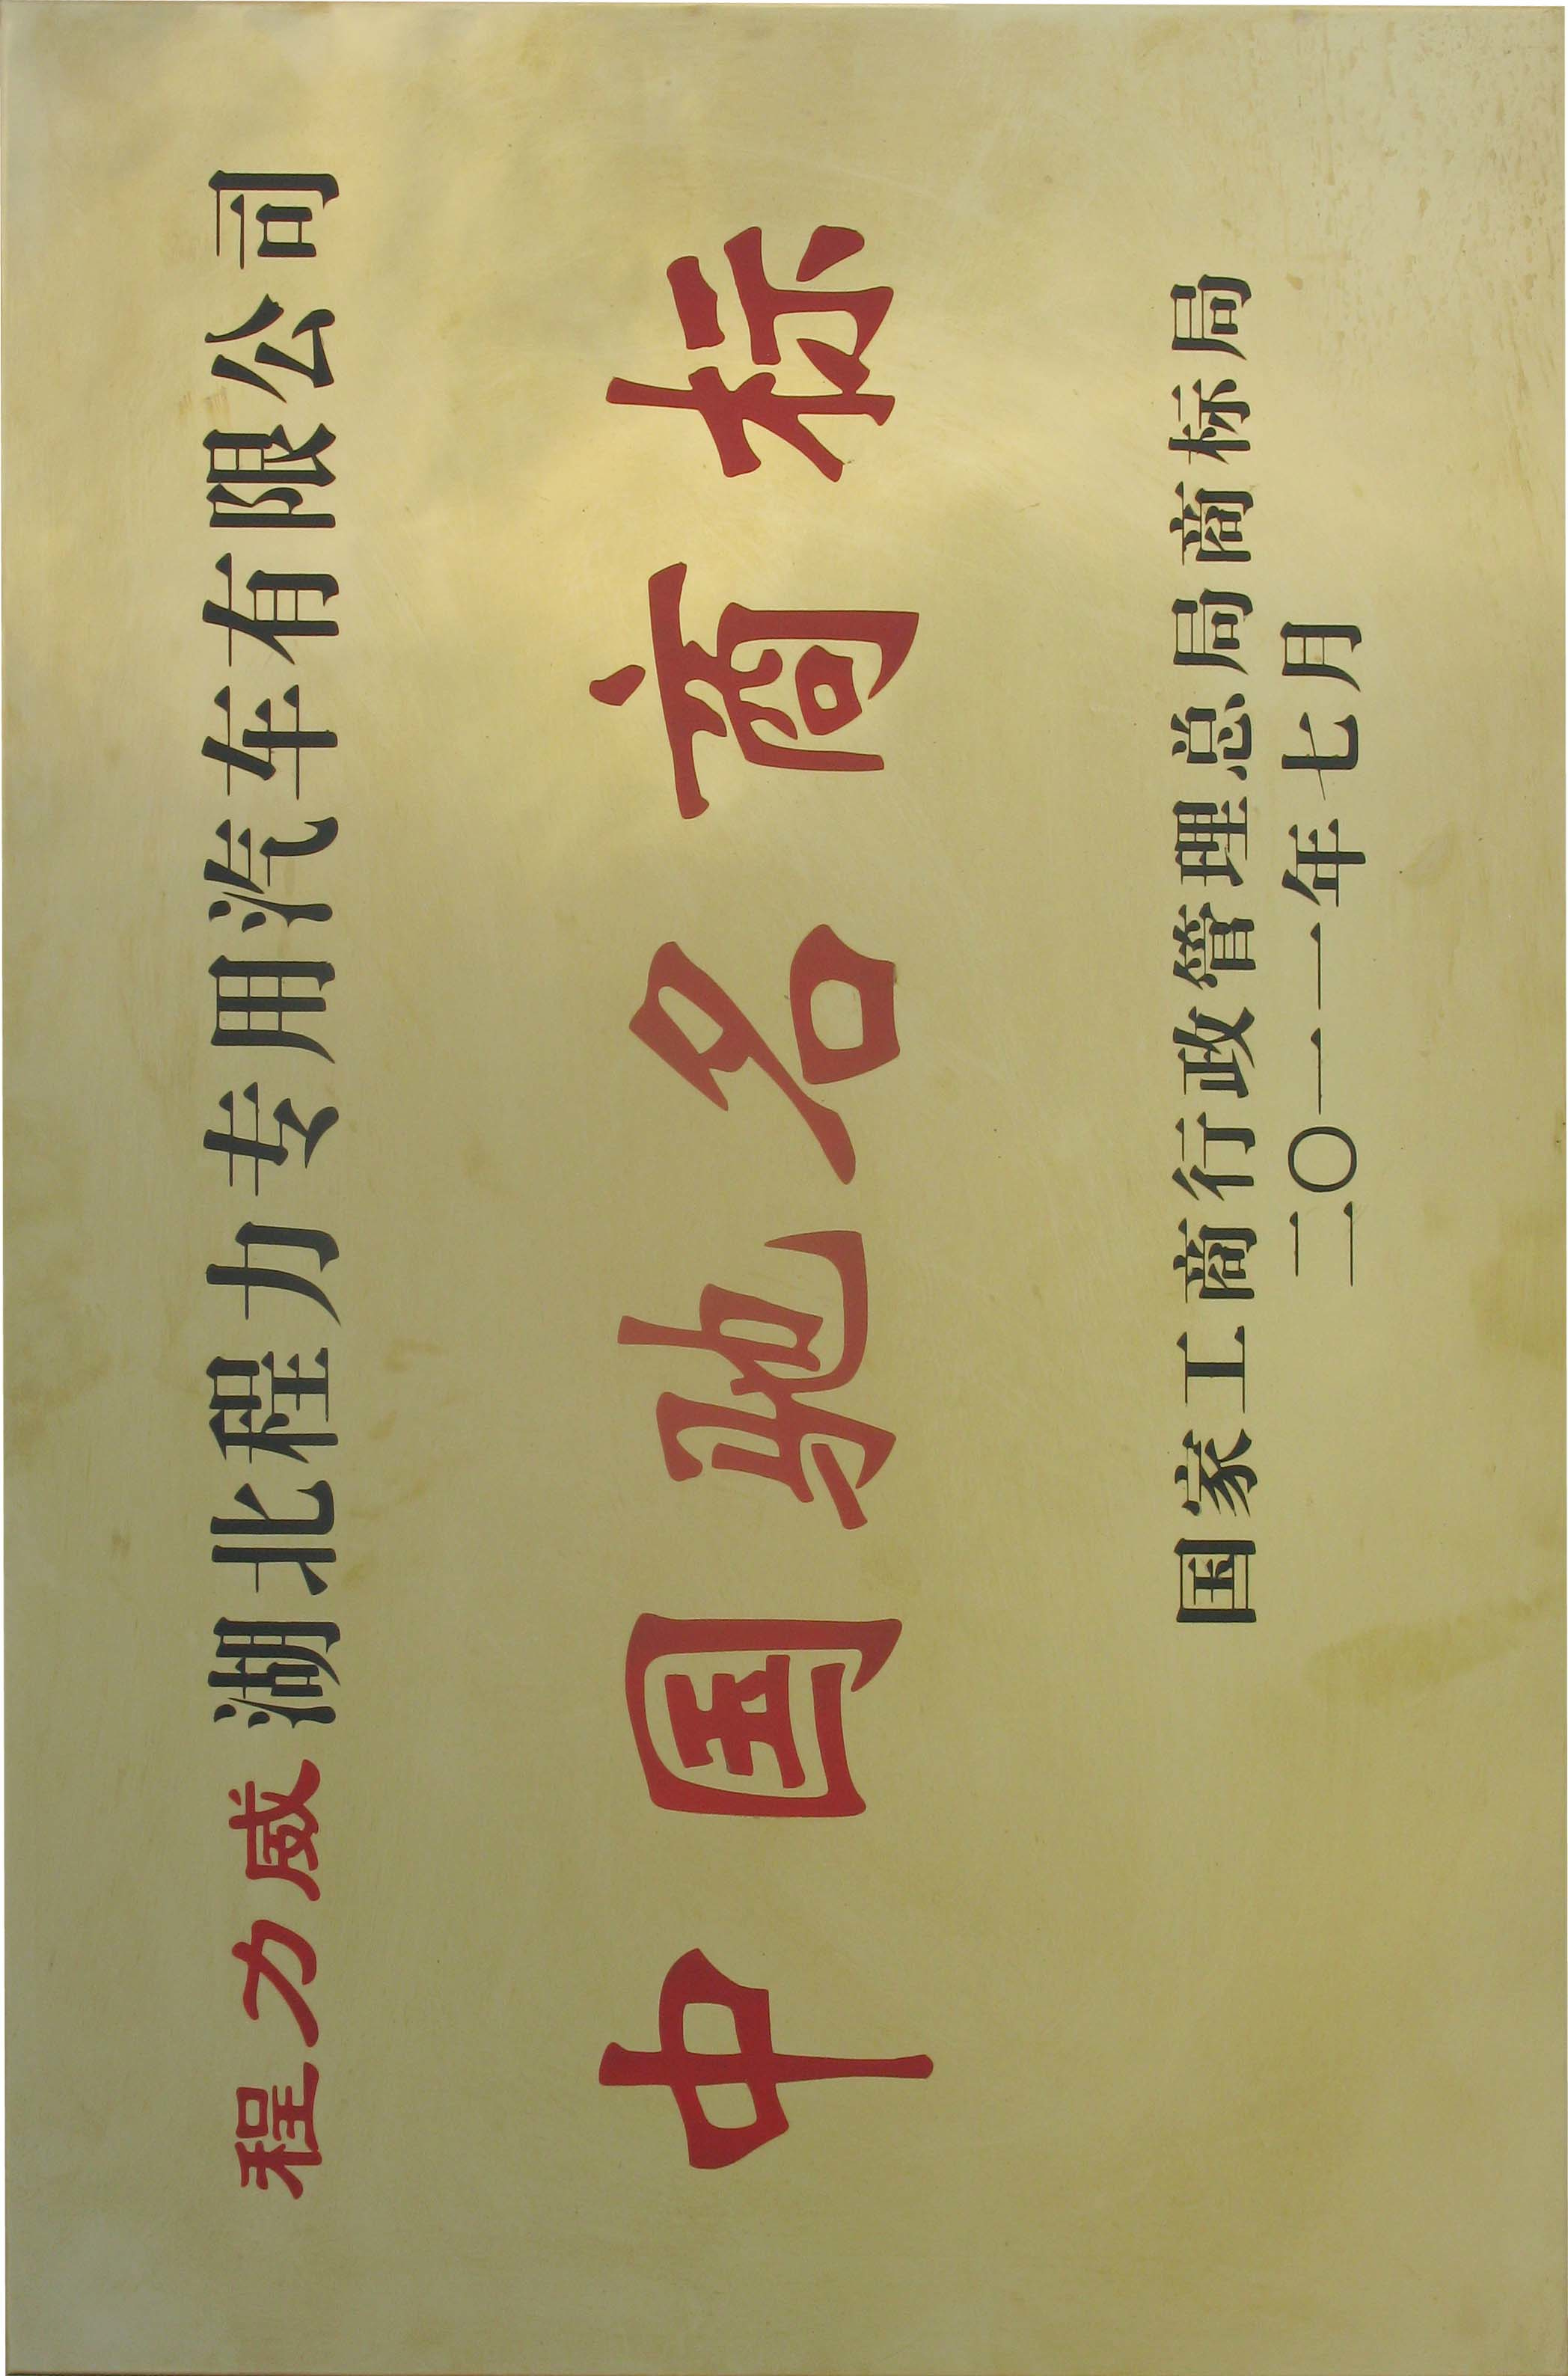 程力威 湖北程力专用汽车有限公司
中国驰名商标
国家工商行政管理总局商标局
二〇一一年七月